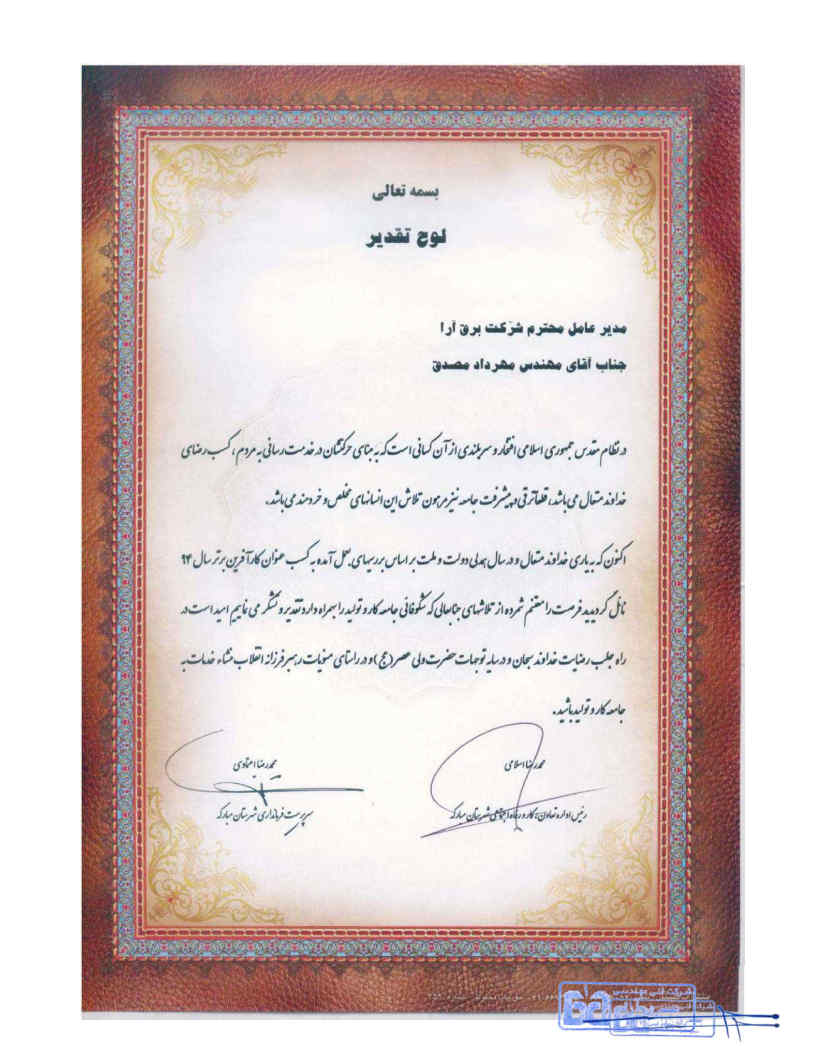 بسمه تعالی
لوح تقدیر
مدیر عامل محترم شرکت برق آرا
جناب آقای مهندس مهرداد مصدق
در نظام مقدس جمهوری اسلامی افتخار و سربلندی از آن کسانی است که به مبنای حرکتشان در خدمت رسانی به مردم ، کسب رضای
خداوند متعال می باشد، قطعاً ترقی و پیشرفت جامعه نیز مرهون تلاش این انسانهای مخلص و خردمند می باشد .
اکنون که به یاری خداوند متعال و در سال همدلی دولت و ملت بر اساس بررسیهای بعمل آمده به کسب عنوان کارآفرین برتر سال ۹۴
نائل گردیدید فرصت را مغتنم شمرده از تلاشهای جنابعالی که شکوفائی جامعه کار و تولید را بهمراه دارد تقدیر و تشکر می نمایم امید است در
راه جلب رضایت خداوند سبحان و در سایه توجهات حضرت ولی عصر (عج) و در راستای منویات رهبر فرزانه انقلاب منشاء خدمات به
جامعه کار و تولید باشید .
محمدرضا اسلامی
رئیس اداره تعاون، کار و رفاه اجتماعی شهرستان مبارکه
محمدرضا اعتمادی
سرپرست فرمانداری شهرستان مبارکه
شرکت فنی مهندسی